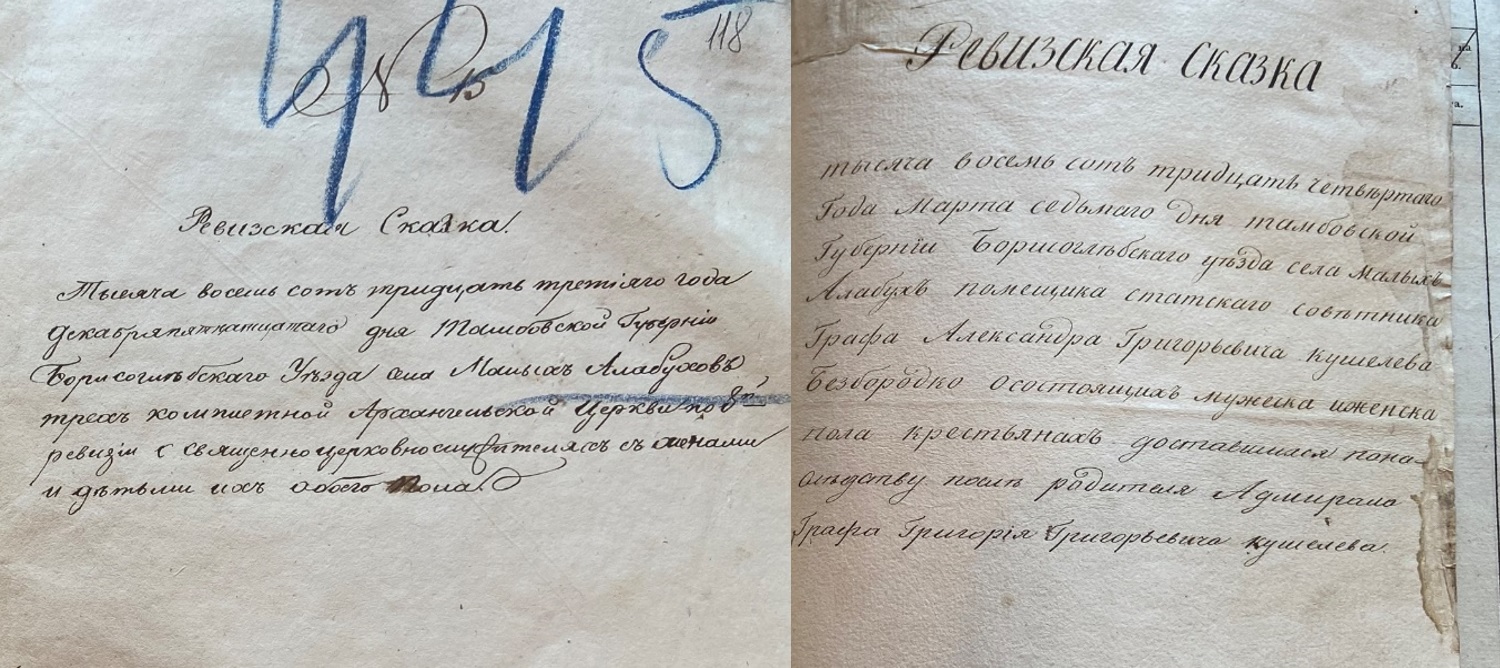 118
№ 15
415
Ревизская Сказка.
Тысяча восемь сотъ тридцать третіяго года
декабря пятнатцатаго дня Тамбовской Губерніи
Борисоглѣбскаго Уѣзда села Малыхъ Алабуховъ
трехъ комплетной Архангельской Церкви по 8й
ревизіи с священно церковно служителяхъ съ женами
и дѣтьми ихъ обоего пола.
Ревизская сказка
тысяча восемь сотъ тридцать четвѣртаго
Года Марта седьмаго дня тамбовской
Губерніи Борисоглѣбскаго уѣзда села малыхъ
Алабухъ помещика статскаго совѣтника
Графа Александра Григорьевича кушелева
Безбородко осостоящихъ мужеска иженска
пола крестьянахъ доставшихся пона
слѣдству послѣ родителя Адмирала
Графа Григорія Григорьевича кушелева.